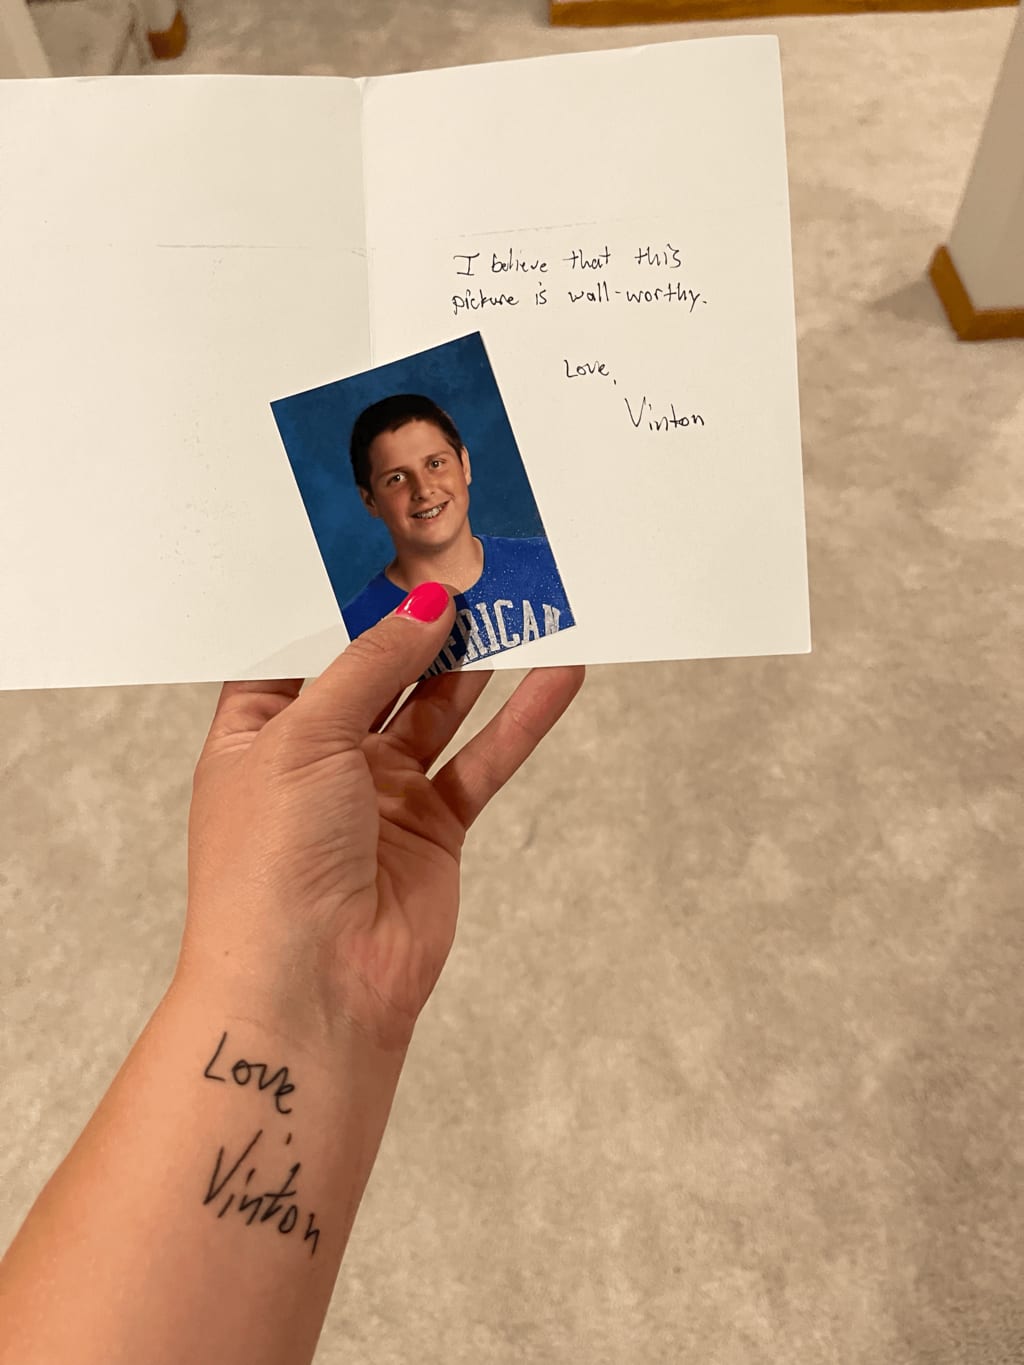 I believe that this
picture is wall-worthy.
Love,
Vinton
ERICAN
Love,
Vinton